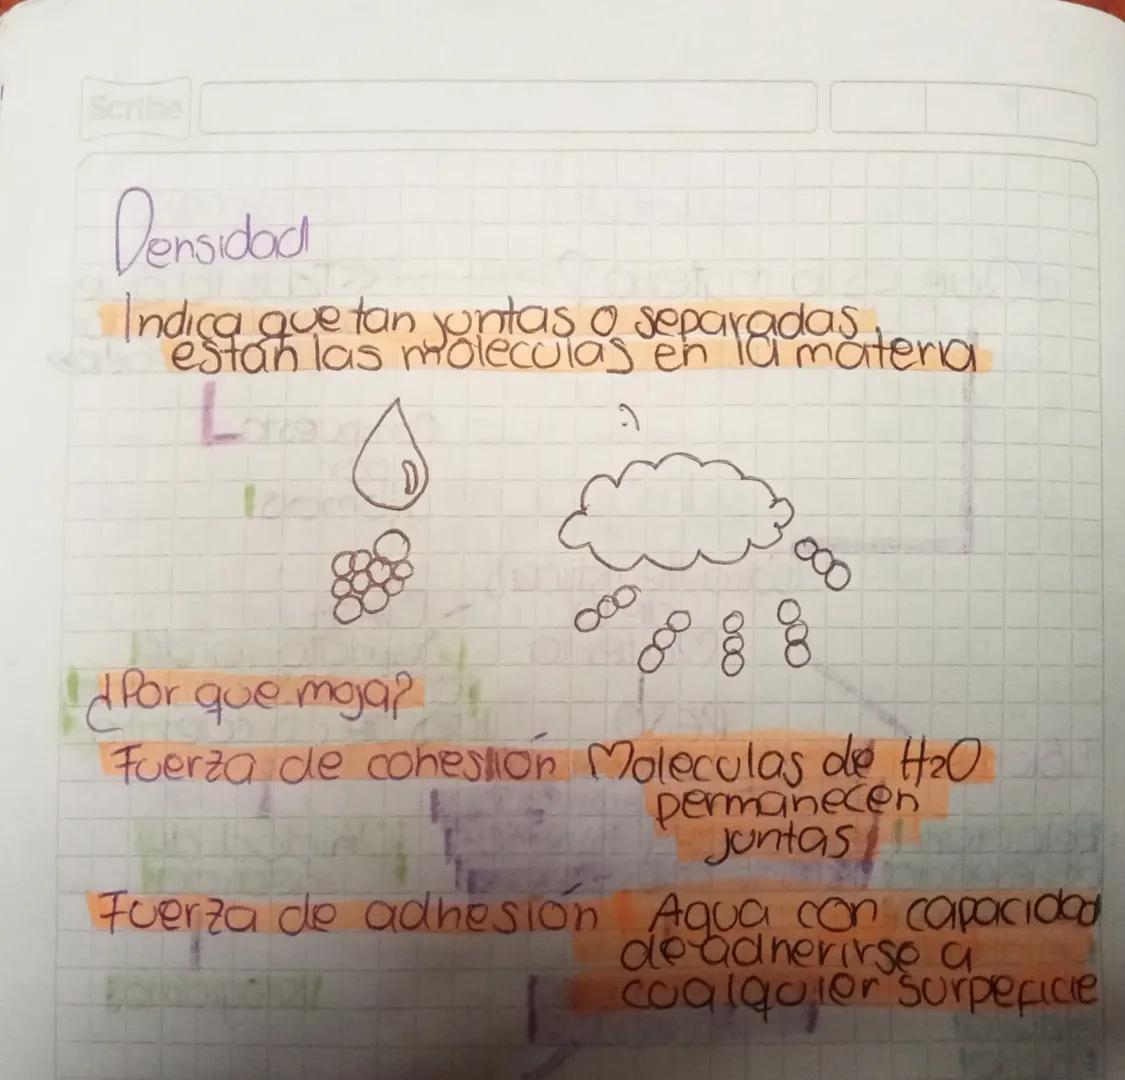 Scribe
Densidad
Indica que tan juntas o separadas
están las moleculas en la materia
:)
¿Por que moja?
Fuerza de cohesión Moleculas de H2O
permanecen
juntas
Fuerza de adhesión Agua con capacidad
de adherirse a
cualquier surpeficie